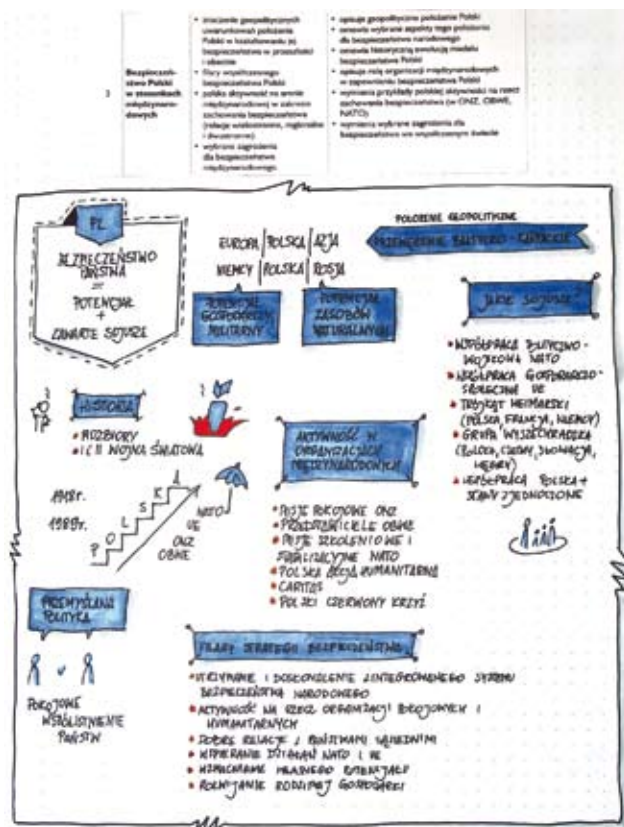 3
Bezpieczeń-
stwo Polski
w stosunkach
międzynaro-
dowych
• znaczenie geopolitycznych
uwarunkowań położenia
Polski w kształtowaniu jej
bezpieczeństwa w przeszłości
i obecnie
• filary współczesnego
bezpieczeństwa Polski
• polska aktywność na arenie
międzynarodowej w zakresie
zachowania bezpieczeństwa
(relacje wielostronne, regionalne
i dwustronne)
• wybrane zagrożenia
dla bezpieczeństwa
międzynarodowego.
• opisuje geopolityczne położenie Polski
• omawia wybrane aspekty tego położenia
dla bezpieczeństwa narodowego
• omawia historyczną ewolucję modelu
bezpieczeństwa Polski
• opisuje rolę organizacji międzynarodowych
w zapewnieniu bezpieczeństwa Polski
• wymienia przykłady polskiej aktywności na rzecz
zachowania bezpieczeństwa (w ONZ, OBWE,
NATO)
• wymienia wybrane zagrożenia dla
bezpieczeństwa we współczesnym świecie
PL
BEZPIECZEŃSTWO
PAŃSTWA
=
POTENCJAŁ
+
ZAWARTE SOJUSZE
EUROPA | POLSKA | AZJA
NIEMCY | POLSKA | ROSJA
POTENCJAŁ
GOSPODARCZY
MILITARNY
POTENCJAŁ
ZASOBÓW
NATURALNYCH
POŁOŻENIE GEOPOLITYCZNE
JAKIE SOJUSZE?
• WSPÓŁPRACA POLITYCZNO-
WOJSKOWA NATO
• WSPÓŁPRACA GOSPODARCZO-
SPOŁECZNA UE
• TRÓJKĄT WEIMARSKI
(POLSKA, FRANCJA, NIEMCY)
• GRUPA WYSZEHRADZKA
(POLSKA, CZECHY, SŁOWACJA,
WĘGRY)
• WSPÓŁPRACA POLSKA +
STANY ZJEDNOCZONE
HISTORIA
• ROZBIORY
• I i II WOJNA ŚWIATOWA
1918r.
1989r.
POLSKA
NATO
UE
ONZ
OBWE
AKTYWNOŚĆ W
ORGANIZACJACH
MIĘDZYNARODOWYCH
• MISJE POKOJOWE ONZ
• PRZEDSTAWICIELE OBWE
• MISJE SZKOLENIOWE I
STABILIZACYJNE NATO
• POLSKA AKCJA HUMANITARNA
• CARITAS
• POLSKI CZERWONY KRZYŻ
PRZEMYŚLANA
POLITYKA
POKOJOWE
WSPÓŁISTNIENIE
PAŃSTW
FILARY STRATEGII BEZPIECZEŃSTWA
• UTRZYMANIE I DOSKONALENIE ZINTEGROWANEGO SYSTEMU
BEZPIECZEŃSTWA NARODOWEGO
• AKTYWNOŚĆ NA RZECZ ORGANIZACJI POKOJOWYCH I
HUMANITARNYCH
• DOBRE RELACJE Z PAŃSTWAMI SĄSIEDNIMI
• WSPIERANIE DZIAŁAŃ NATO I UE
• WZMACNIANIE WŁASNEGO POTENCJAŁU
• ROZWIJANIE RODZIMEJ GOSPODARKI